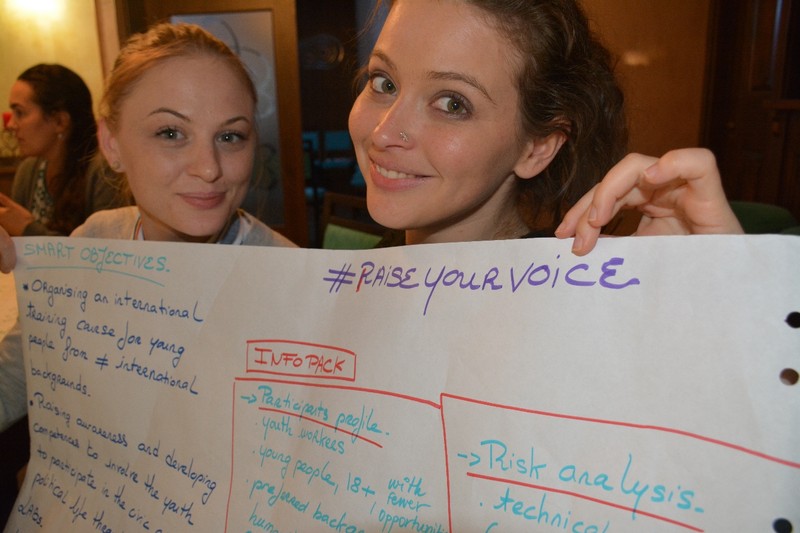 SMART OBJECTIVES.
#RAISEYOURVOICE
• Organising an international
training course for young
people from ≠ international
backgrounds.
• Raising awareness and developing
competences to involve the youth
to participate in the civic
political life
INFOPACK
→ Participants profile.
· youth workers
· young people, 18+ with
fewer
opportuniti
· preferred backgro
huma
→ Risk analysis.
· technical